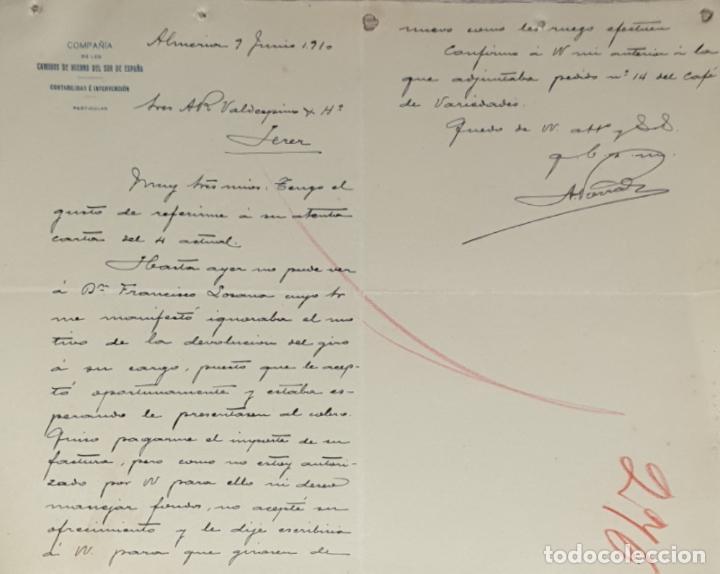 COMPAÑIA
DE LOS
CAMINOS DE HIERRO DEL SUR DE ESPAÑA
CONTABILIDAD É INTERVENCIÓN
PARTICULAR
Almeria 9 Junio 1910
Sres A R Valdespino & Hº
Jerez
Muy Sres mios: Tengo el
gusto de referirme á su atenta
carta del 4 actual.
Hasta ayer no pude ver
á Dn Francisco Losana cuyo Sr
me manifestó ignoraba el mo
tivo de la devolucion del giro
á su cargo, puesto que le acep
tó oportunamente y estaba es-
perando le presentasen al cobro.
Quiso pagarme el importe de su
factura, pero como no estoy autori-
zado por V para ello ni deseo
manejar fondos, no acepté su
ofrecimiento y le dije escribiria
á V. para que girasen de
nuevo como les ruego efectuen
Confirmo á V mi anterior á la
que adjuntaba pedido nº 14 del Café
de Variedades.
Quedo de V. att y S.S.
q b s m
276
todocoleccion
todocoleccion.net